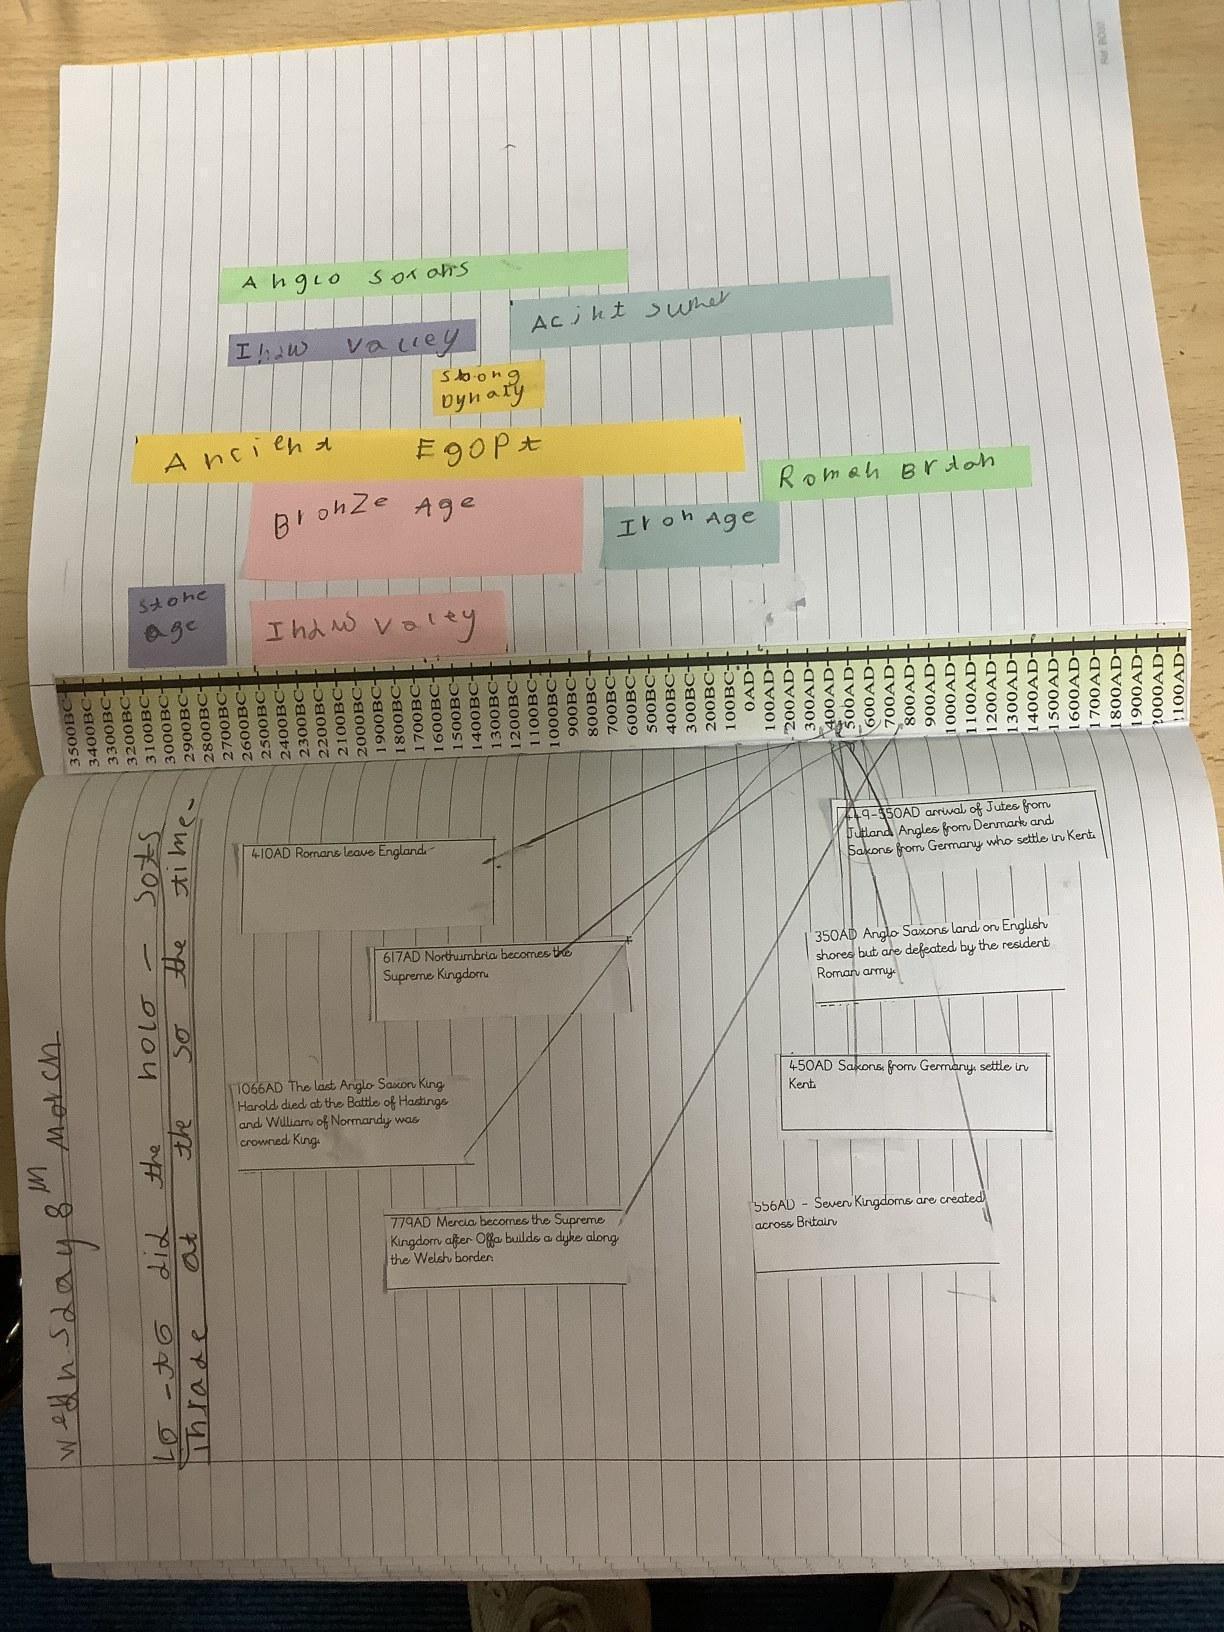 Ref: BC00
Anglo soxans
Acint sumer
Indw valley
Shong
Dynaty
Ancient Egopt
Roman Brtan
Bronze Age
Iron Age
stone
age
Indw valey
3500BC
3400BC
3300BC
3200BC
3100BC
3000BC
2900BC
2800BC
2700BC
2600BC
2500BC
2400BC
2300BC
2200BC
2100BC
2000BC
1900BC
1800BC
1700BC
1600BC
1500BC
1400BC
1300BC
1200BC
1100BC
1000BC
900BC
800BC
700BC
600BC
500BC
400BC
300BC
200BC
100BC
0AD
100AD
200AD
300AD
400AD
500AD
600AD
700AD
800AD
900AD
1000AD
1100AD
1200AD
1300AD
1400AD
1500AD
1600AD
1700AD
1800AD
1900AD
2000AD
1100AD
Wednsday 8th March
LO - to did the holo - sots
Inrade at the so the time.
410AD Romans leave England.
449-550AD arrival of Jutes from
Jutland, Angles from Denmark and
Saxons from Germany who settle in Kent.
617AD Northumbria becomes the
Supreme Kingdom.
350AD Anglo Saxons land on English
shores but are defeated by the resident
Roman army.
1066AD The last Anglo Saxon King
Harold died at the Battle of Hastings
and William of Normandy was
crowned King.
450AD Saxons, from Germany, settle in
Kent.
779AD Mercia becomes the Supreme
Kingdom after Offa builds a dyke along
the Welsh border.
556AD - Seven Kingdoms are created
across Britain